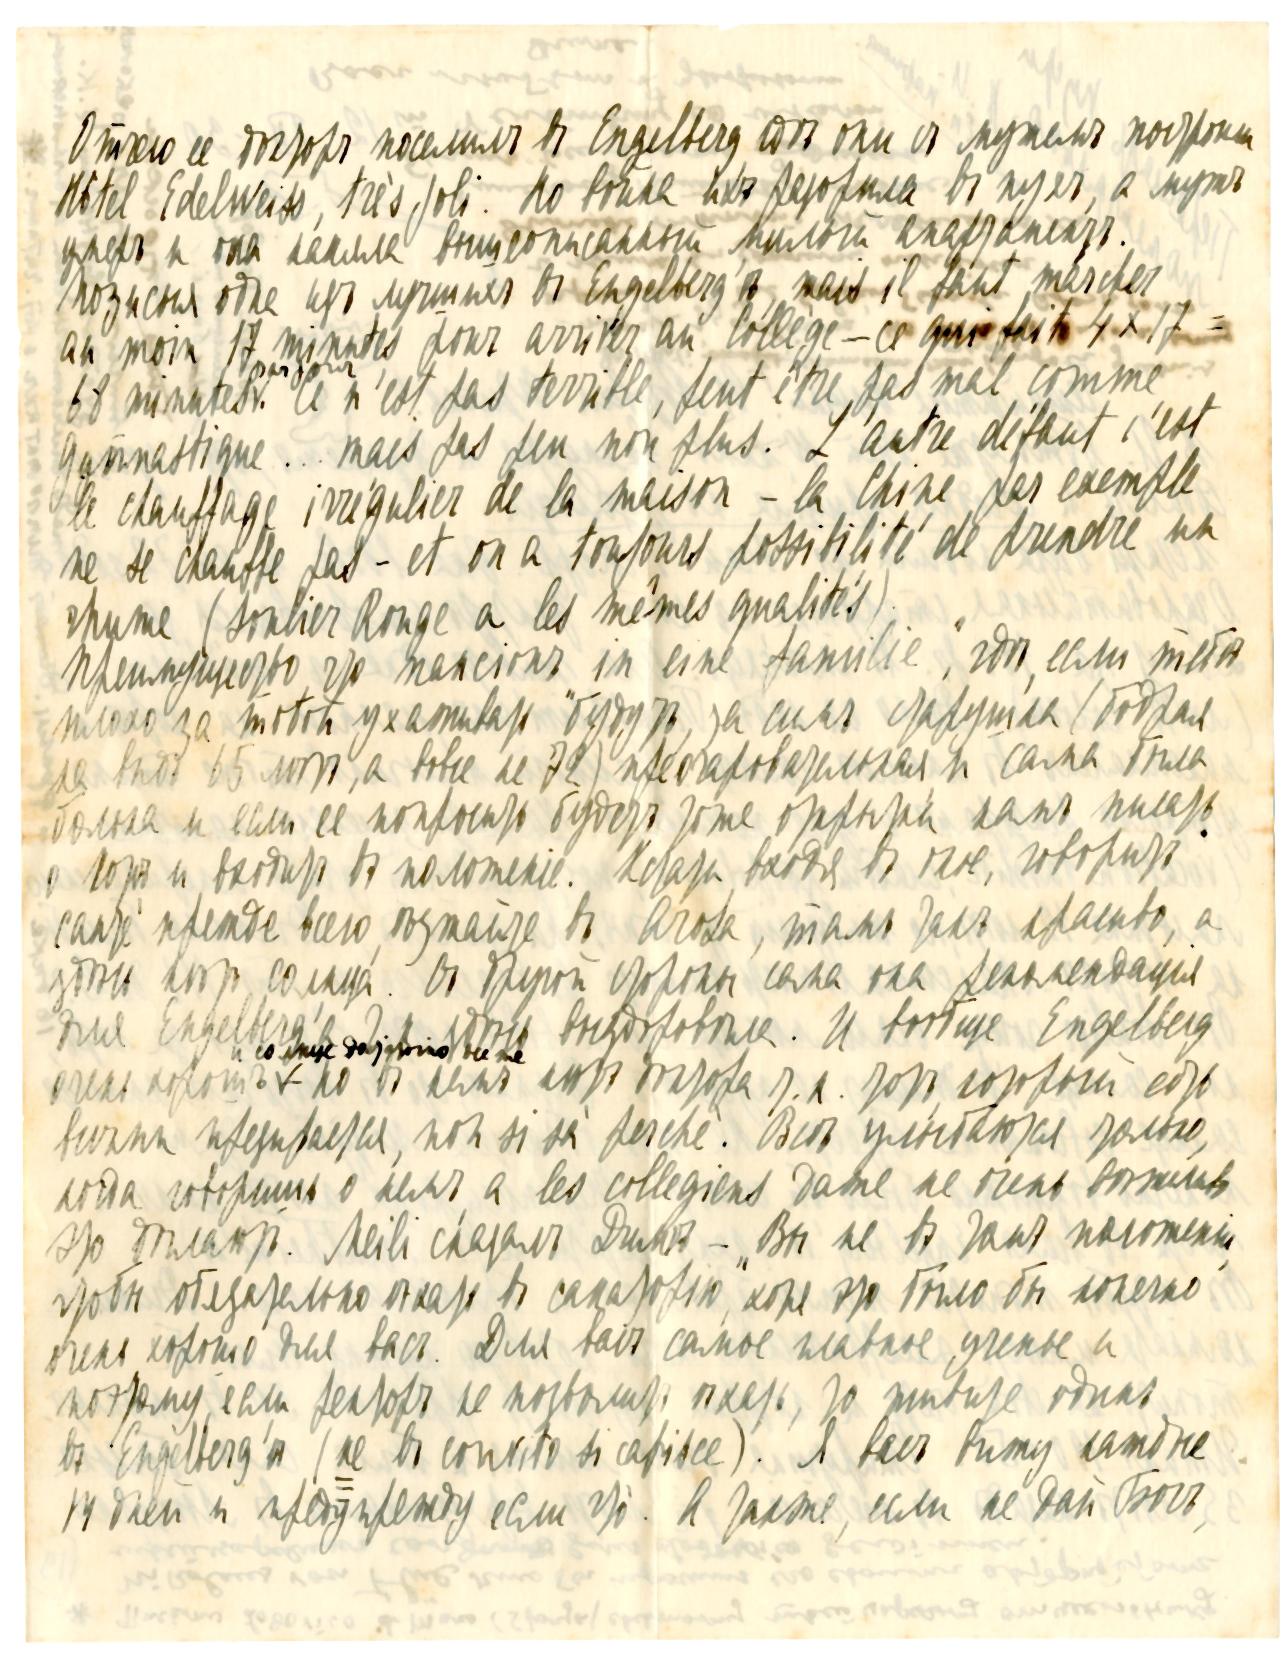 Оттого ее докторъ поселилъ въ Engelberg гдѣ они съ мужемъ построили
Hôtel Edelweiss, très joli. Но война ихъ разорила въ пухъ, а мужъ
умеръ и она наняла вышеописанный милый апартаментъ.
Позиція одна изъ лучшихъ въ Engelberg'ѣ, mais il faut marcher
au moin 17 minutes pour arriver au Collège – ce qui fait 4 x 17 =
68 minutes par jour. Ce n'est pas terrible, peut être pas mal comme
gymnastique ... mais pas peu non plus. L'autre défaut c'est
le chauffage irrégulier de la maison – la Chine par exemple
ne se chauffe pas – et on a toujours possibilité de prendre un
rhume (Soulier Rouge a les mêmes qualités).
Преимущество что пансіонъ in eine Familie", гдѣ, если тебѣ
плохо за тобой ухаживать будутъ, за симъ старушка (бодрая
на видъ 65 лѣтъ, а вовсе не 72) преочаровательная и сама была
больна и если ее попросить будетъ тоже открытки намъ писать
о Тотѣ и входить въ положеніе. Кстати, входя въ оное, говоритъ
прежде всего, поѣзжайте въ Arosa, тамъ такъ красиво, а
здѣсь нѣтъ солнца. Съ другой стороны сама она рекомендація
для Engelberg'а здѣсь выздоровѣла. И вообще Engelberg
очень хорошъ и солнце достаточно все же но въ немъ нѣтъ доктора т.к. тотъ который есть
всѣми презирается, non si sà perché. Всѣ улыбаются только,
когда говоришь о немъ а les collegiens даже не очень вѣжливо
это дѣлаютъ. Meili сказалъ Димѣ – „Вы не въ такъ положеніи,
чтобы обязательно ѣхать въ санаторію", хотя это было бы конечно
очень хорошо для васъ. Для васъ самое главное ученье и
поэтому, если ректоръ не позволитъ ѣхать, то живите одинъ
въ Engelberg'ѣ (не въ convitto si capisce). Я васъ вижу каждые
14 дней и предупрежду если что. А также, если не дай Богъ,